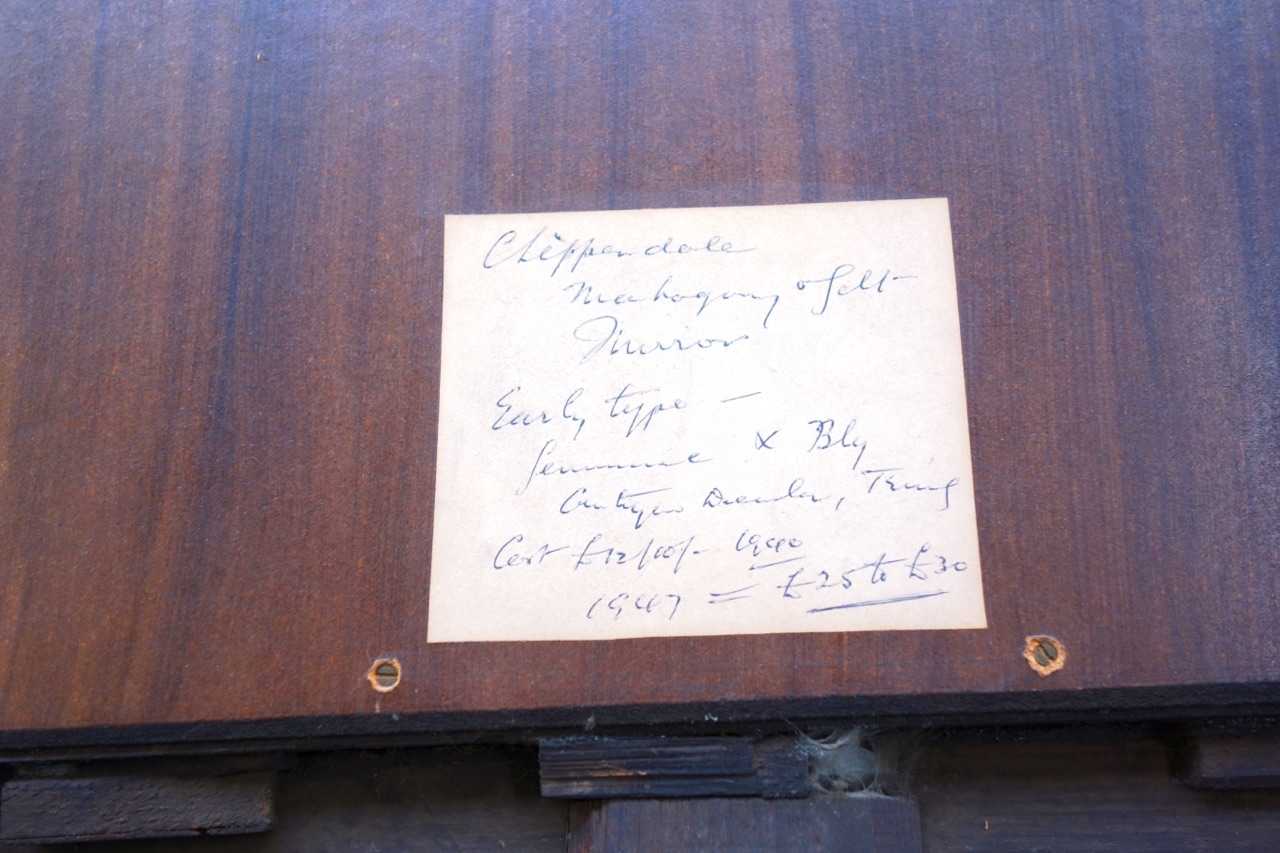 Chippendale
Mahogany & Gilt
Mirror
Early type -
Genuine x Bly
Antique Dealer, Tring
Cost £12/10/- 1940
1947 = £25 to £30